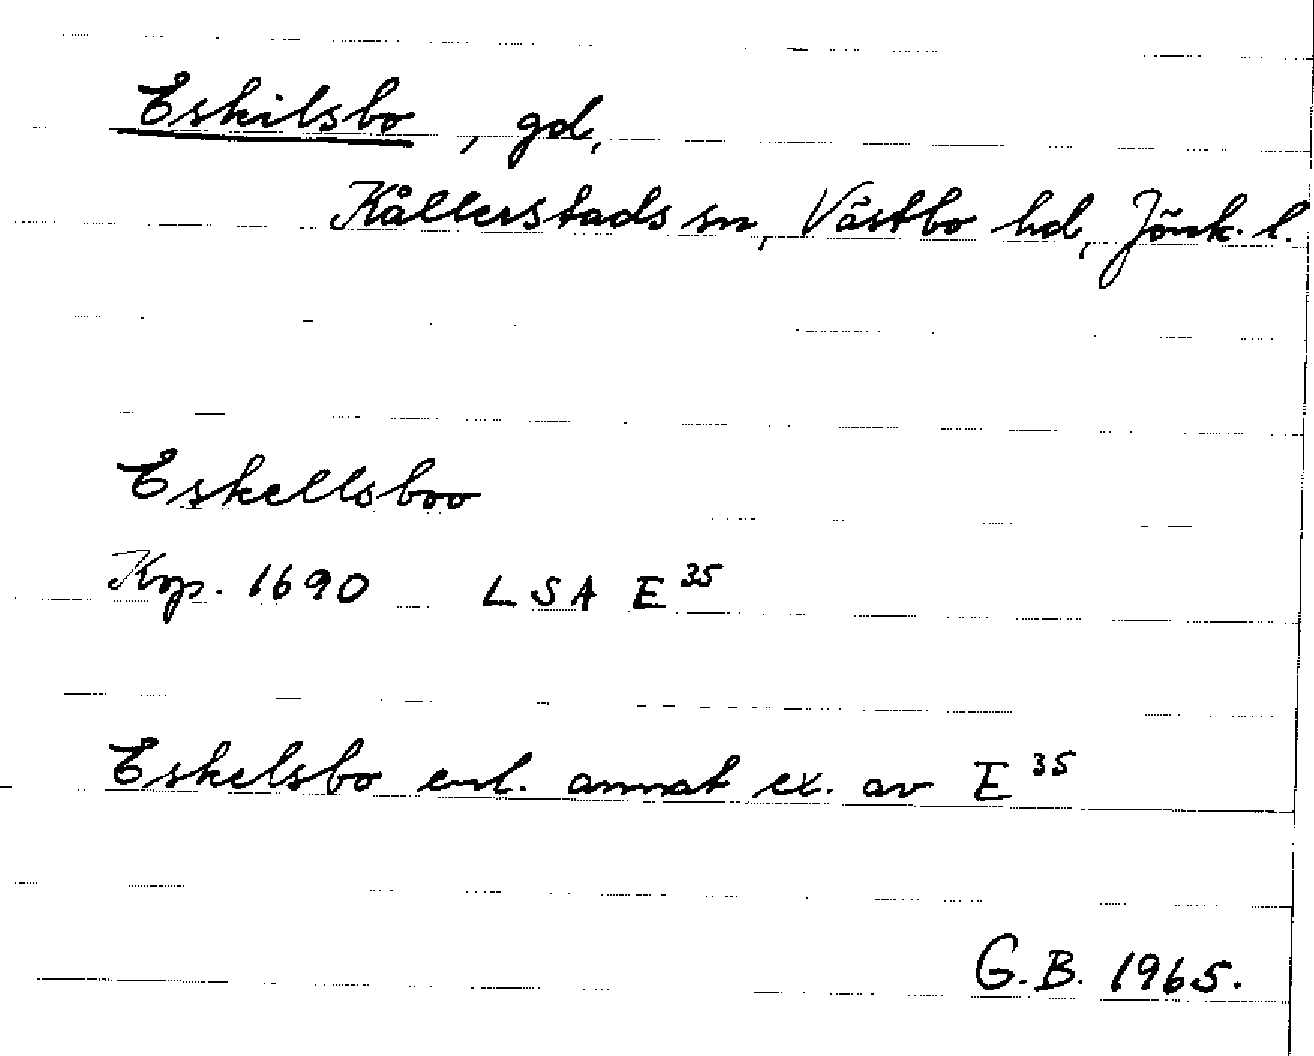 Eskilsbo, gd,
Kållerstads sn, Västbo hd, Jönk. l.
Eskellsboo
Kop. 1690 LSA E 35
Eskelsbo enl. annat ex. av E 35
G.B. 1965.